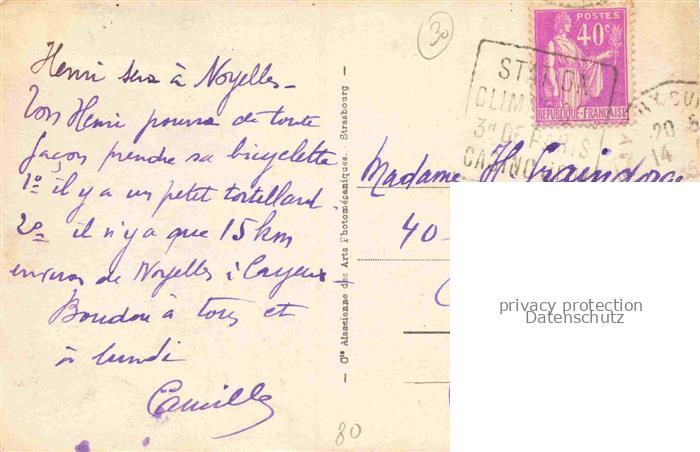 Henri sera à Noyelles –
Ton Henri pourra de toute
façon prendre sa bicyclette
1º il y a un petit tortillard
2º il n'y a que 15 km
environ de Noyelles à Cayeux –
à tous et
à lundi
Camille
30
80
— Cie Alsacienne des Arts Photomécaniques. Strasbourg —
POSTES
40c
REPUBLIQUE FRANÇAISE
STATION
CLIM
3H DE PARIS
CASINO
20
14
Madame H.
40 -
privacy protection
Datenschutz